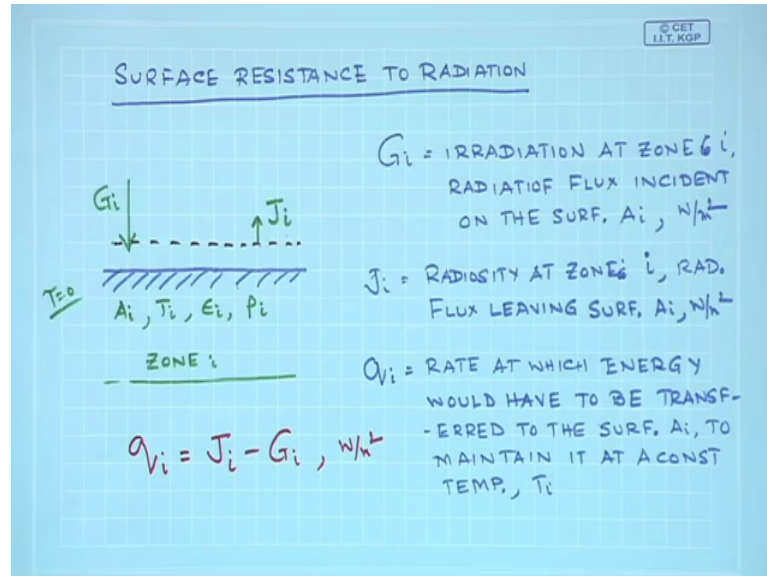 © CET
I.I.T. KGP
SURFACE RESISTANCE TO RADIATION
Gi
Ji
τ=0
Ai, Ti, εi, ρi
ZONE i
qi = Ji - Gi, W/m²
Gi = IRRADIATION AT ZONE i,
RADIATIOF FLUX INCIDENT
ON THE SURF. Ai, W/m²
Ji = RADIOSITY AT ZONE i, RAD.
FLUX LEAVING SURF. Ai, W/m²
qi = RATE AT WHICH ENERGY
WOULD HAVE TO BE TRANSF-
-ERRED TO THE SURF. Ai, TO
MAINTAIN IT AT A CONST
TEMP., Ti